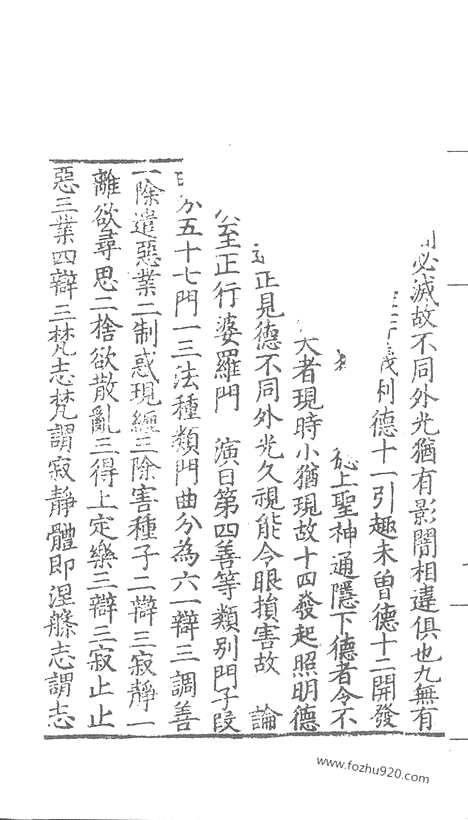 必滅故不同外光猶有影闇相違俱也九無有
義利德十一引趣未曽德十二開發
上聖神通隱下德者令不
大者現時小猶現故十四發起照明德
正見德不同外光久視能令眼損害故 論
至正行婆羅門 演曰第四善等類別門子段
分五十七門一三法種類門曲分為六一辯三調善
一除遣惡業二制惑現纏三除害種子二辯三寂靜一
離欲尋思二捨欲散亂三得上定樂三辯三寂止止
惡三業四辯三梵志梵謂寂靜體即涅槃志謂志
www.fozhu920.com